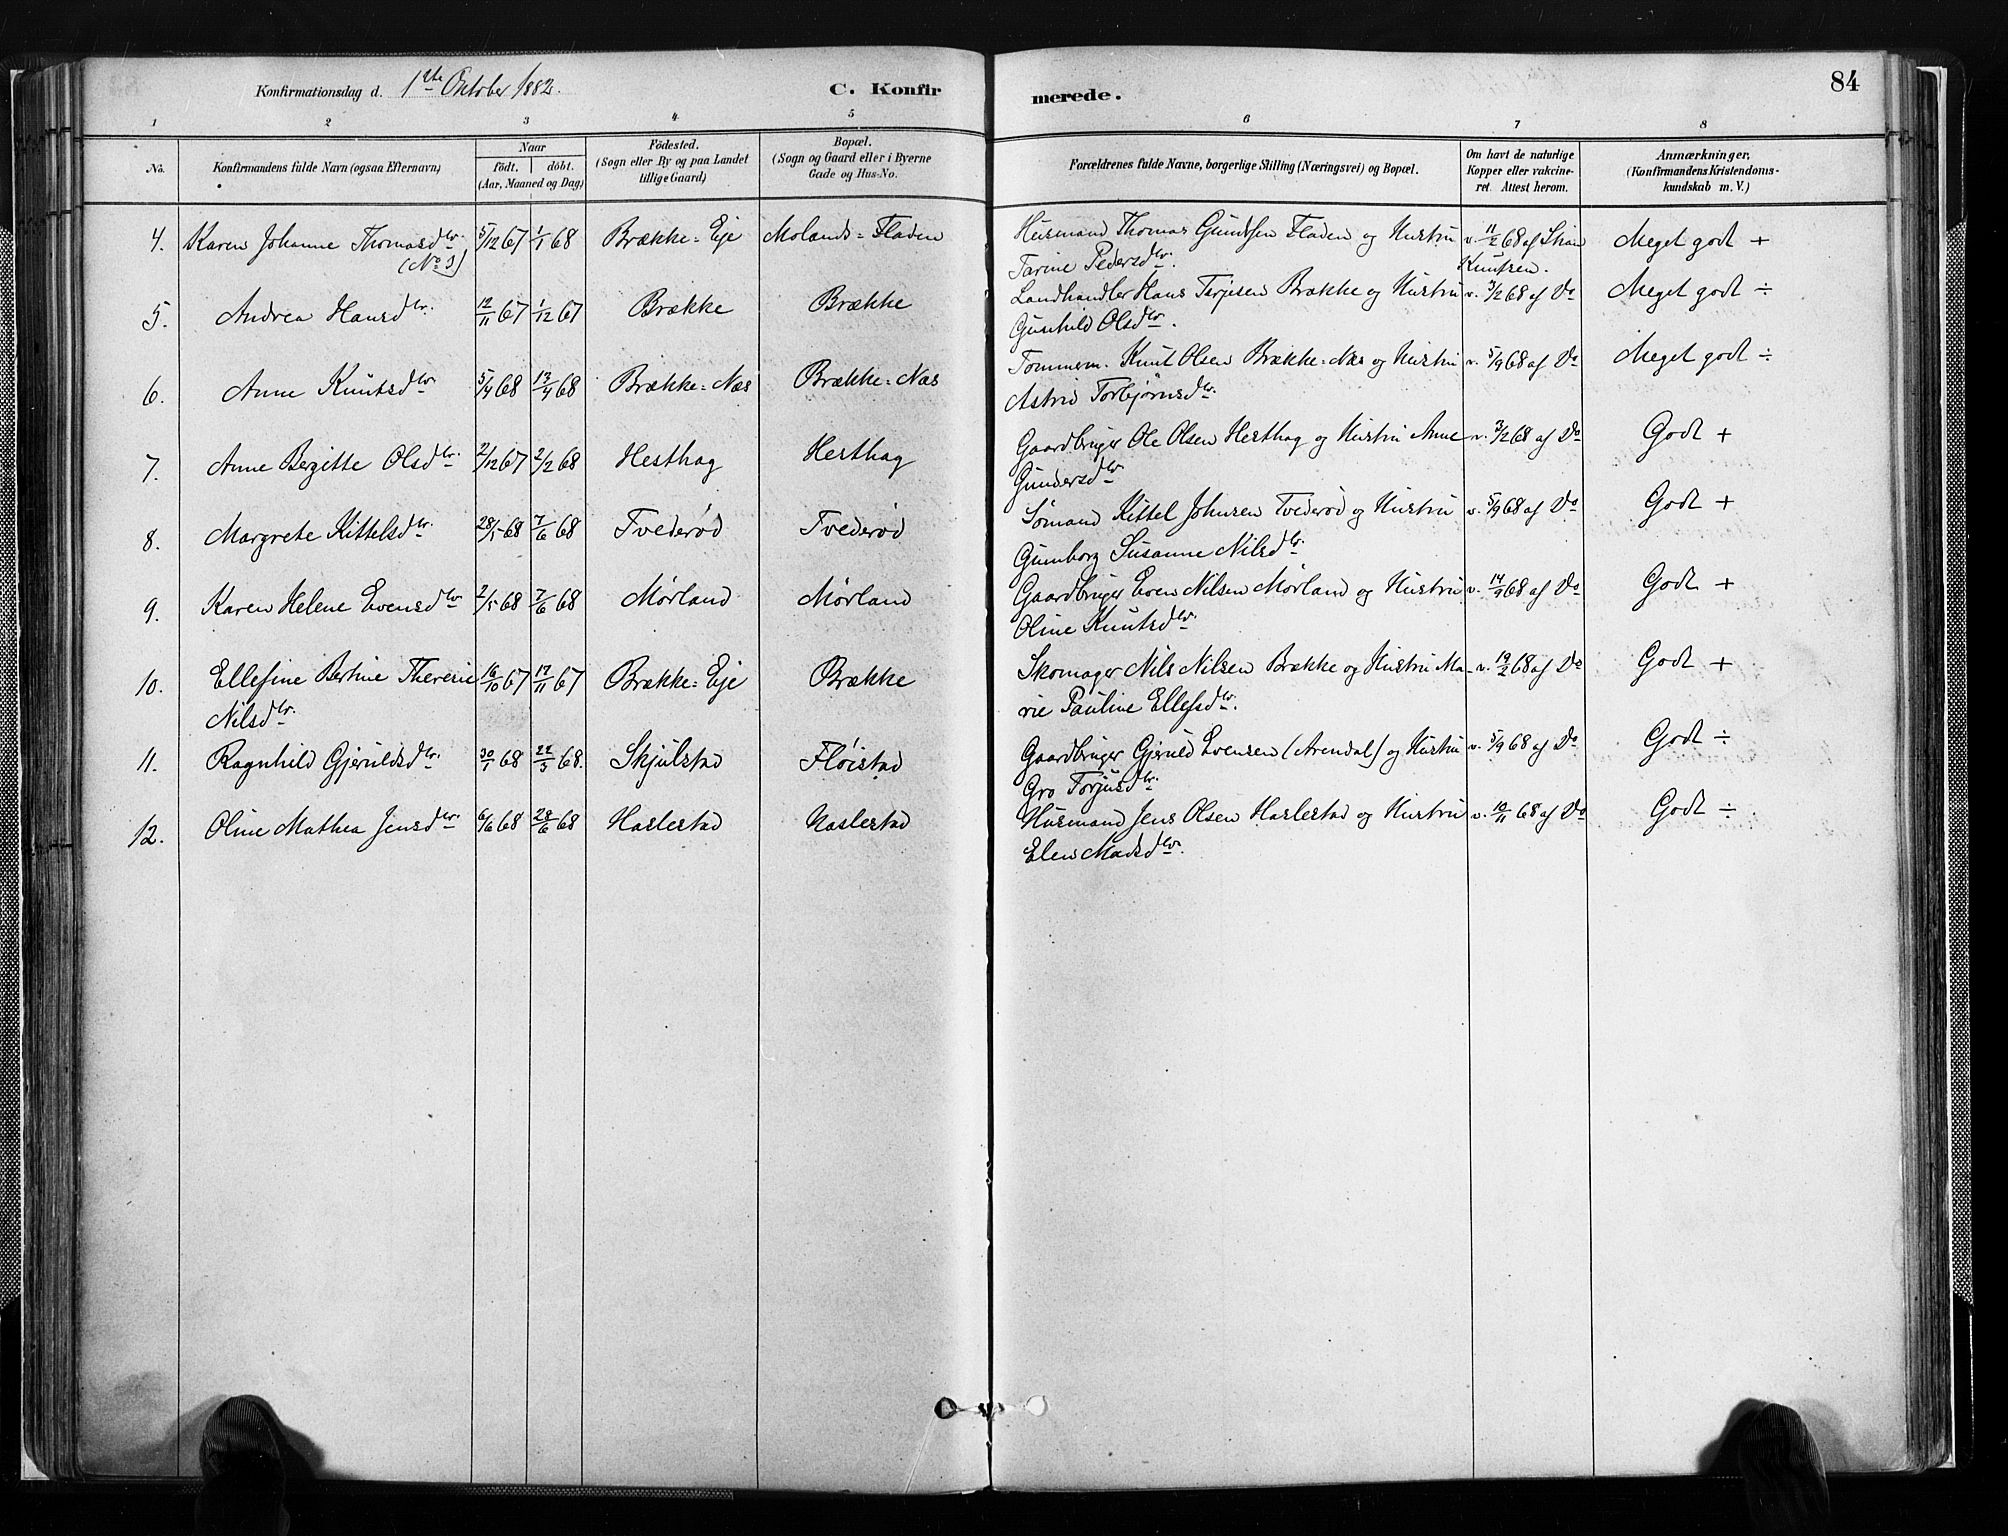 Konfirmationsdag d. 1ste Oktober 1882. C. Konfirmerede. 84
1 2 3 4 5 6 7 8
No. Konfirmandens fulde Navn (ogsaa Efternavn) Naar födt. döbt. (Aar, Maaned og Dag) Födested. (Sogn eller By og paa Landet tillige Gaard) Bopæl. (Sogn og Gaard eller i Byerne Gade og Hus-No. Forældrenes fulde Navne, borgerlige Stilling (Næringsvei) og Bopæl. Om havt de naturlige Kopper eller vakcineret. Attest herom. Anmærkninger, (Konfirmandens Kristendomskundskab m. V.)
4. Karen Johanne Thomasdtr. 5/12 67 1/1 68 Brække-Eje Molands-Fladen Husmand Thomas Gundsen Fladen og Hustru v. 11/2 68 af Meget godt +
(No 3) Tarine Pedersdtr. Knutsen.
5. Andrea Hansdtr. 12/11 67 1/12 67 Brække Brække Landhandler Hans Terjesen Brække og Hustru v. 3/2 68 af Do Meget godt ÷
Gunhild Olsdtr.
6. Anne Knutsdtr 5/4 68 13/4 68 Brække-Næs Brække-Næs Tømmerm. Knut Olsen Brække-Næs og Hustru v. 5/9 68 af Do Meget godt ÷
Astrid Torbjørnsdtr.
7. Anne Bergitte Olsdtr. 2/12 67 2/2 68 Hesthag Hesthag Gaardbruger Ole Olsen Hesthag og Hustru Anne v. 3/2 68 af Do Godt +
Gundersdtr
8. Margrete Kittelsdtr. 28/5 68 7/6 68 Tvederød Tvederød Sømand Kittel Johnsen Tvederød og Hustru v. 5/9 68 af Do Godt +
Gunborg Susanne Nilsdtr.
9. Karen Helene Evensdtr 2/5 68 7/6 68 Mørland Mørland Gaardbruger Even Nilsen Mørland og Hustru v. 14/9 68 af Do Godt +
Oline Knutsdtr.
10. Ellefine Bertine Theresie 16/10 67 17/11 67 Brække-Eje Brække Skomager Nils Nilsen Brække og Hustru Ma- v. 19/2 68 af Do Godt +
Nilsdtr. rie Pauline Ellefsdtr.
11. Ragnhild Gjeruldsdtr. 30/1 68 22/3 68. Skjulstad Fløistad Gaardbruger Gjeruld Evensen (Arendal) og Hustru v. 5/9 68 af Do Godt ÷
Gro Torjusdtr.
12. Oline Mathea Jensdtr. 6/6 68 28/6 68 Haslestad Haslestad Husmand Jens Olsen Haslestad og Hustru v. 10/11 68 af Do Godt ÷
Elen Madsdtr.